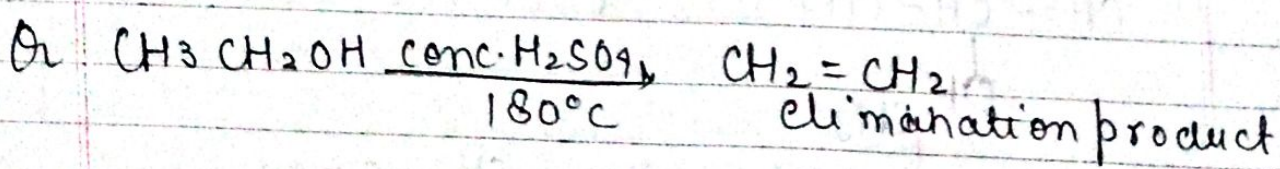 Or CH3 CH2OH conc. H2SO4 CH2 = CH2
180°C elimination product